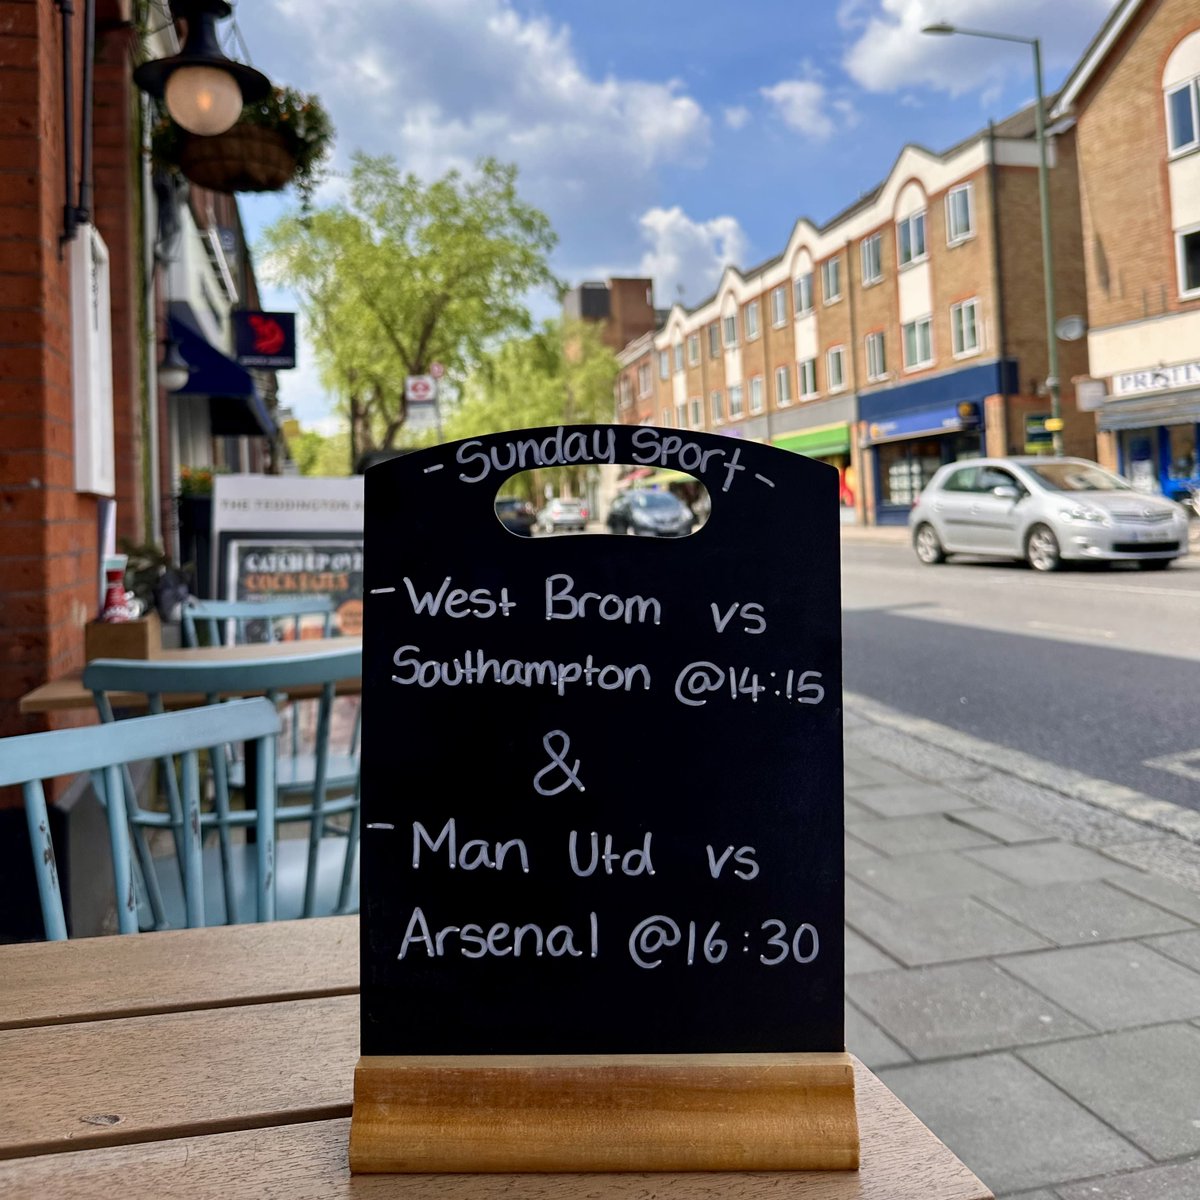 - Sunday Sport -
- West Brom vs
Southampton @14:15
&
- Man Utd vs
Arsenal @16:30
THE TEDDINGTON A
CATCH UP OVE
COCKTAILS